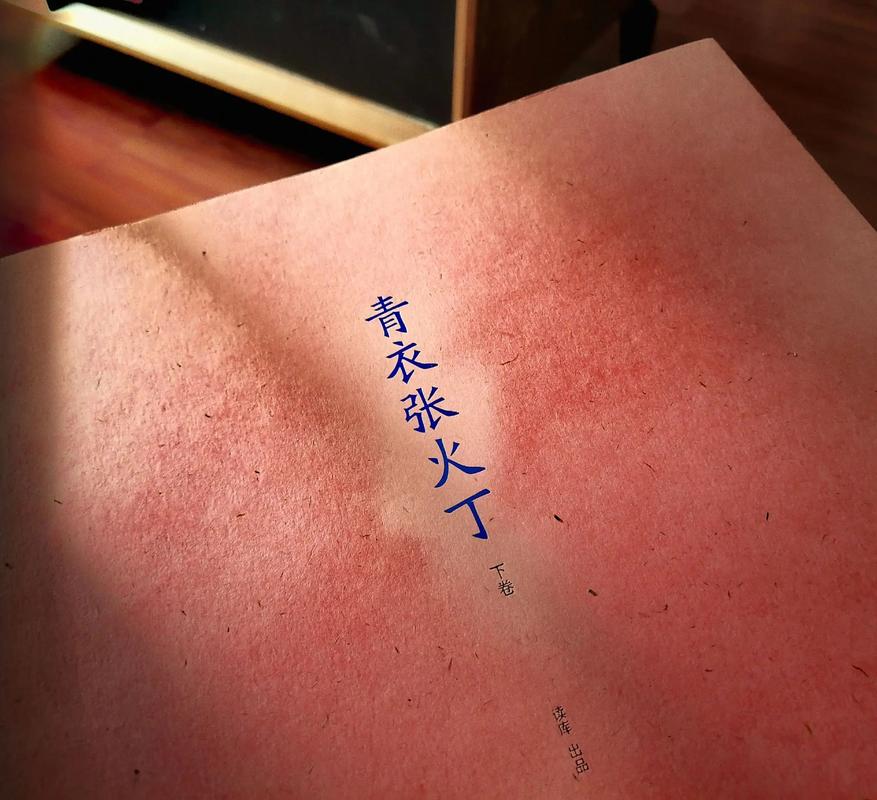 青衣张火丁
下卷
读库 出品